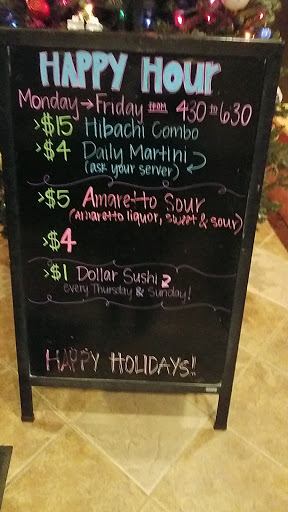 HAPPY HOUR
Monday → Friday FROM 4:30 TO 6:30
>$15 Hibachi Combo
>$4 Daily Martini
(ask your server)
>$5 Amaretto Sour
(Amaretto liquor, sweet & sour)
>$4
>$1 Dollar Sushi
every Thursday & Sunday!
HAPPY HOLIDAYS!!